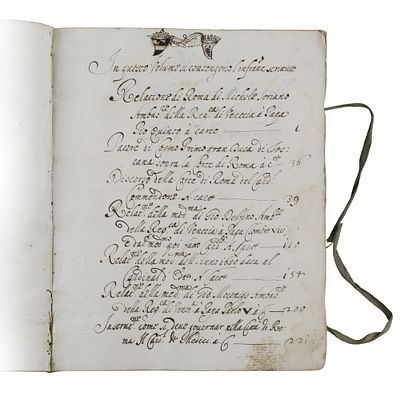 In questo Volume si contengono l'infratte scritture
Relatione di Roma di Michele Soriano
Ambas.re della Rep.ca di Venetia a Papa
Pio Quinto à carte — 1
Parere di Cosmo Primo gran Duca di Tos=
cana sovra la Corte di Roma à c.te — 36
Discorso della Corte di Roma del Card.l
Commendone A carte — 39
Relat.ne della med.ma di Gio Delfino Amb.re
della Rep.ca di Venetia à Papa Clemte VIII,
A carte — 110
Relat.ne della med.ma dell'Anno 1600 data al
Cardinal A carte — 154
Relat.ne della med.ma di Gio Mocenigo Ambas.re
della Rep.ca di Ven.a a Papa Paolo V a C — 200
come si deve governar nella Corte di Ro=
ma Il Car.l de Medici à C — 221